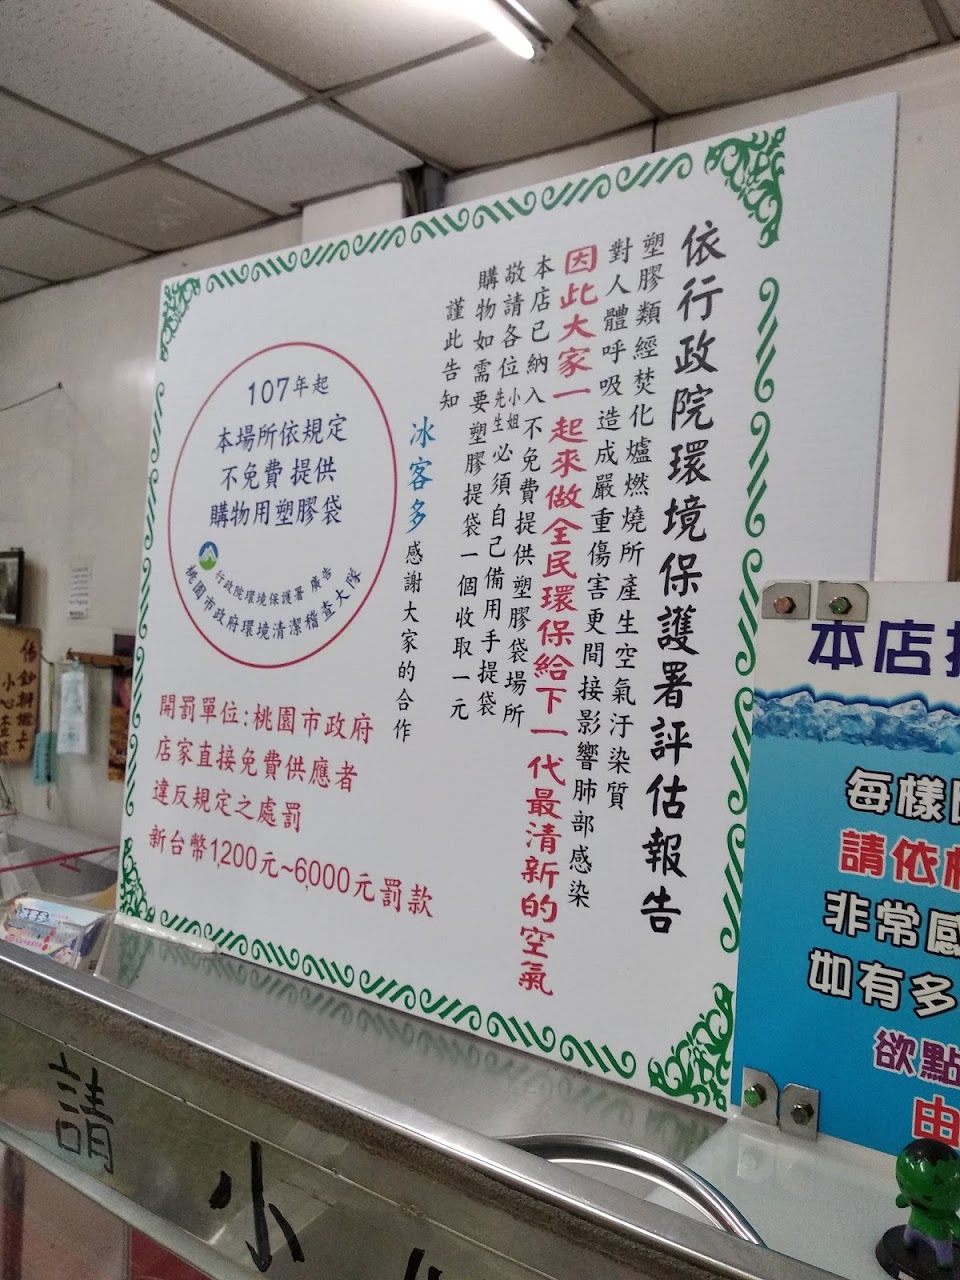 依行政院環境保護署評估報告
塑膠類經焚化爐燃燒所產生空氣汙染質
對人體呼吸造成嚴重傷害更間接影響肺部感染
因此大家一起來做全民環保給下一代最清新的空氣
本店已納入不免費提供塑膠袋場所
敬請各位先生小姐必須自己備用手提袋
購物如需要塑膠提袋一個收取一元
謹此告知
冰客多感謝大家的合作
107年起
本場所依規定
不免費提供
購物用塑膠袋
行政院環境保護署 廣告
桃園市政府環境清潔稽查大隊
開罰單位:桃園市政府
店家直接免費供應者
違反規定之處罰
新台幣1,200元~6,000元罰款
本店
每樣
請依
非常感
如有多
欲點
由
請小